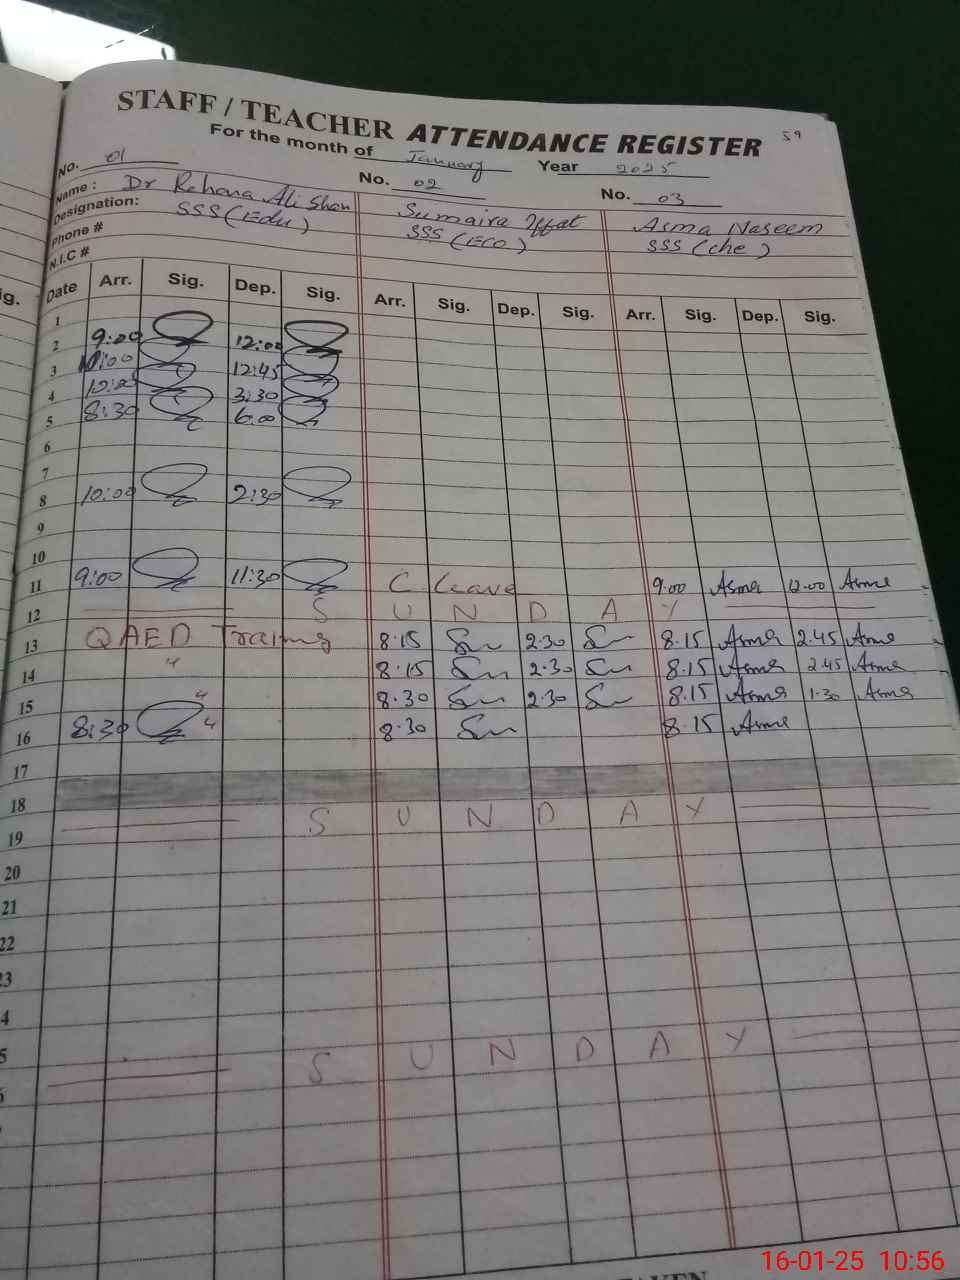 STAFF / TEACHER ATTENDANCE REGISTER 59
For the month of January Year 2025
No. 01 No. 02 No. 03
Name : Dr Rehana Ali Shan Sumaira Iffat Asma Naseem
Designation: SSS (Edu) SSS (Eco) SSS (che)
Phone #
N.I.C #
ig. Date Arr. Sig. Dep. Sig. Arr. Sig. Dep. Sig. Arr. Sig. Dep. Sig.
1
2 9:00 12:00
3 10:00 12:45
4 3:30
5 8:30 6:00
6
7
8 10:00 2:30
9
10
11 9:00 11:30 C. Leave 9.00 Asma 12.00 Asma
12 S U N D A Y
13 QAED Training 8.15 2.30 8.15 Asma 2.45 Asma
14 " 8.15 2.30 8.15 Asma 2.45 Asma
15 " 8.30 2.30 8.15 Asma 1.30 Asma
16 8:30 " 8.30 8.15 Asma
17
18
19 S U N D A Y
20
21
22
23
4
5
6 S U N D A Y
16-01-25 10:56